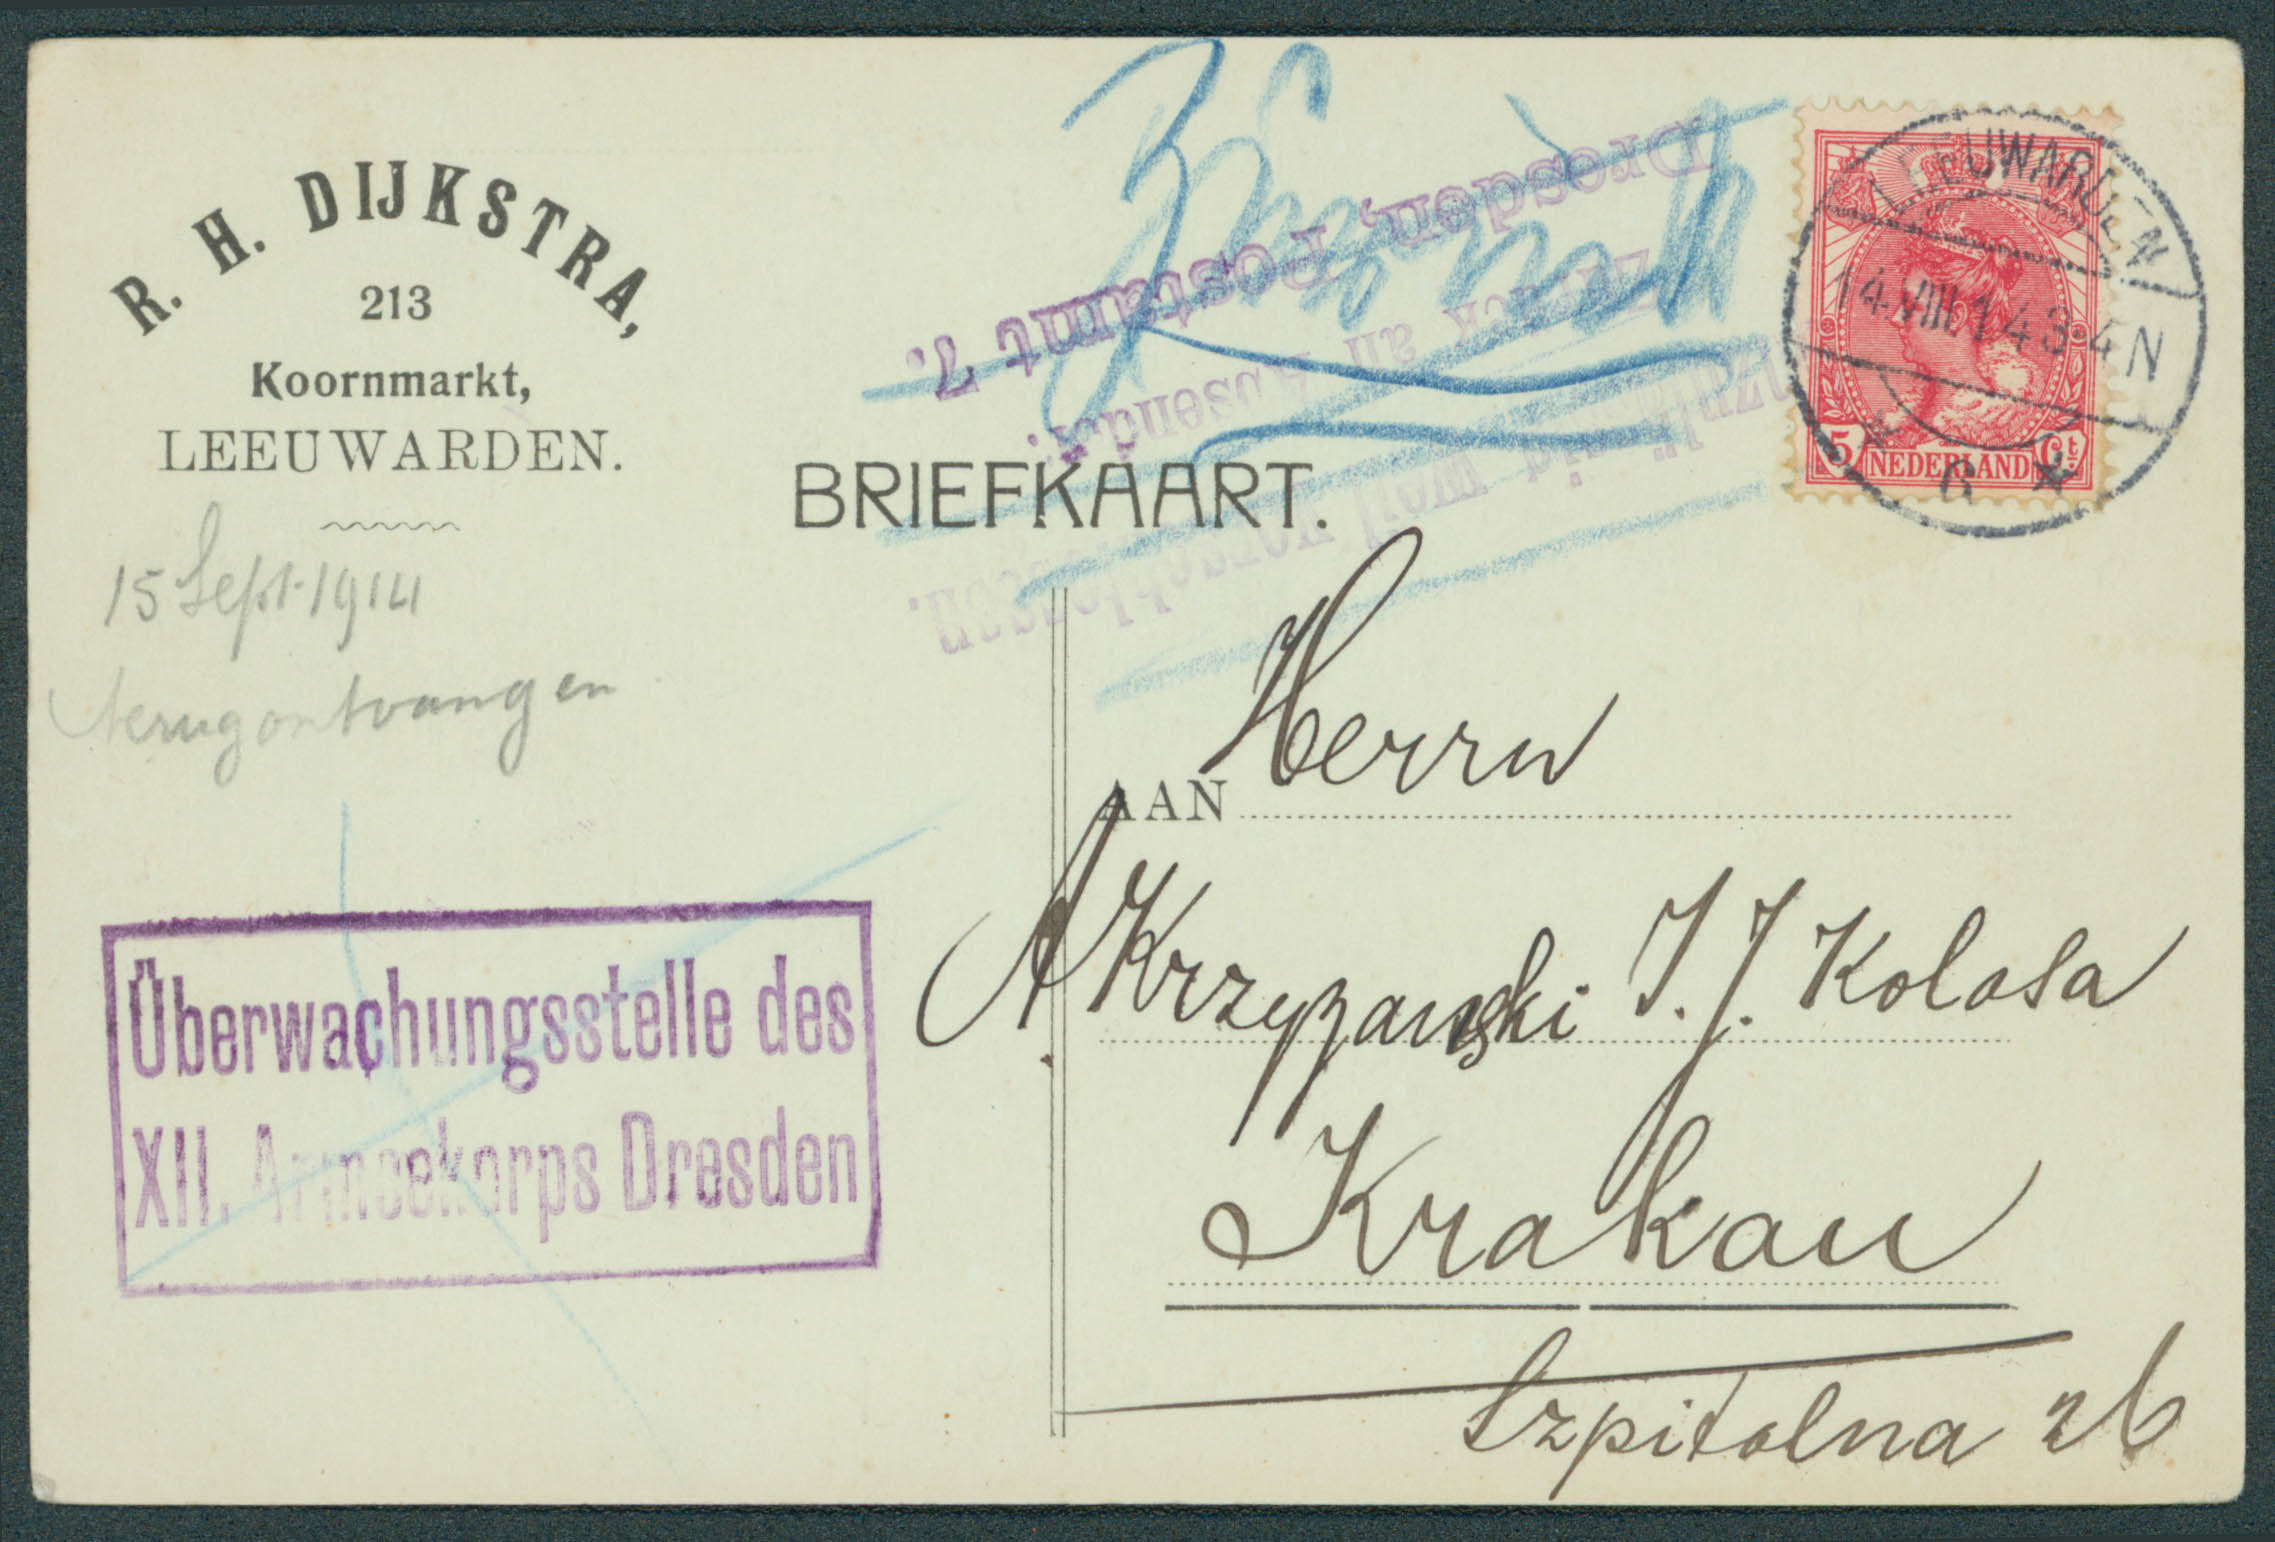 R. H. DIJKSTRA,
213
Koornmarkt,
LEEUWARDEN.
15 Sept. 1914
terugontvangen
Zurück
Dresden, Postamt 7.
zurück an Absender.
unzulässig weil verschlossen.
LEEUWARDEN
14.VIII.14 3-4N
6
5 Ct
NEDERLAND
BRIEFKAART.
AAN Herrn
A. Krzyzanski I. J. Kolasa
Krakau
Szpitalna 26
Überwachungsstelle des
XII. Armeekorps Dresden